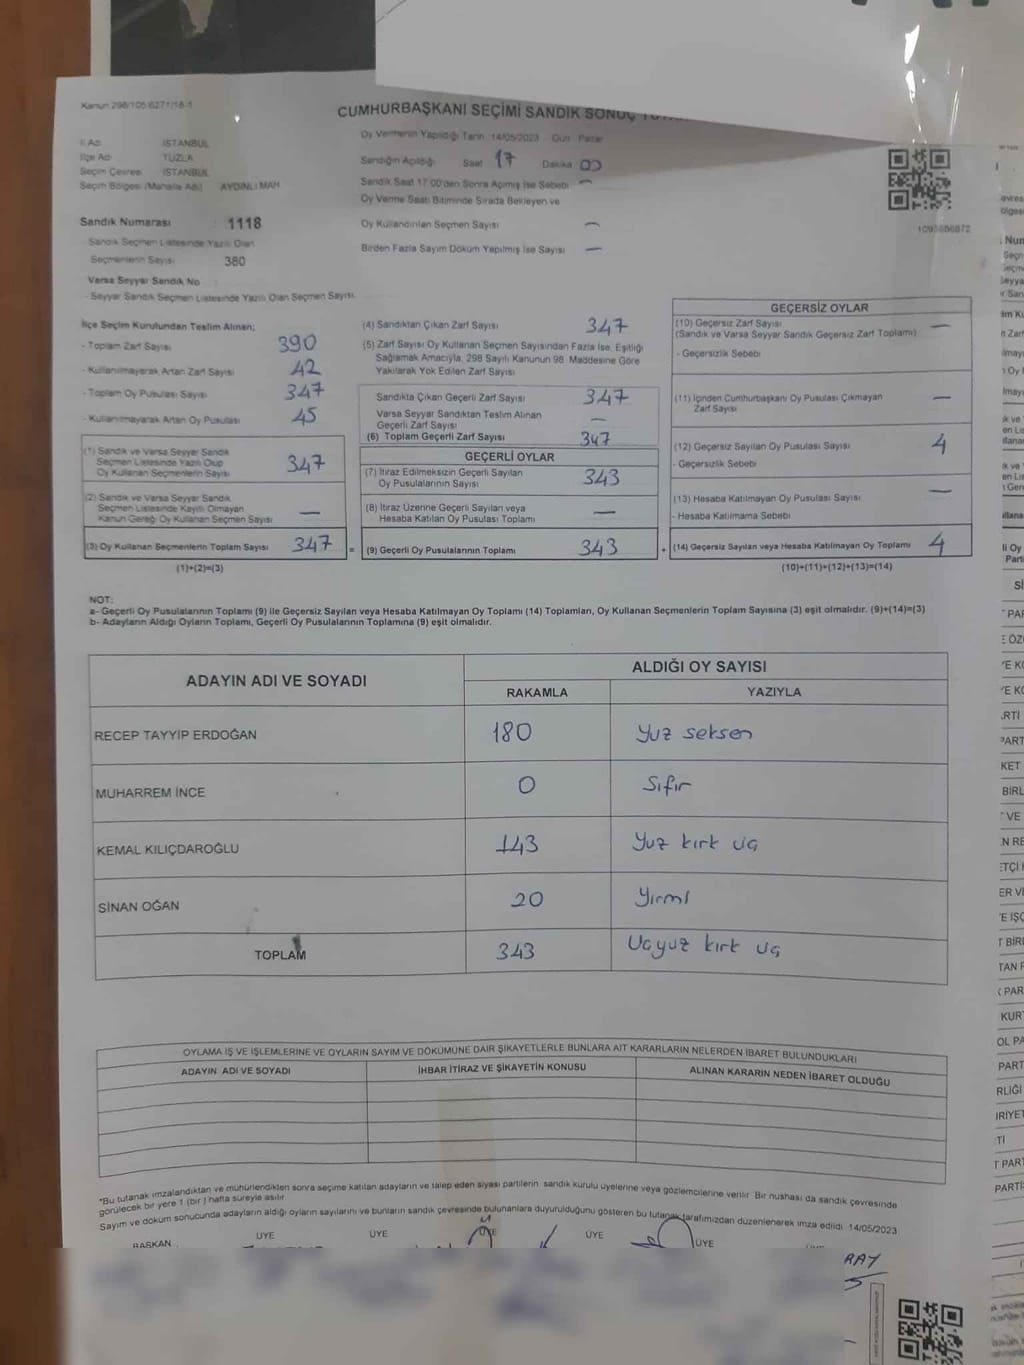 Kanun 298/105 6271/18-1
CUMHURBAŞKANI SEÇİMİ SANDIK SONUÇ
İl Adı İSTANBUL
İlçe Adı TUZLA
Seçim Çevresi İSTANBUL
Seçim Bölgesi (Mahalle Adı) AYDINLI MAH
Sandık Numarası 1118
- Sandık Seçmen Listesinde Yazılı Olan
Seçmenlerin Sayısı 380
Varsa Seyyar Sandık No
- Seyyar Sandık Seçmen Listesinde Yazılı Olan Seçmen Sayısı
Oy Vermenin Yapıldığı Tarih 14/05/2023 Gün Pazar
Sandığın Açıldığı Saat 17 Dakika 00
Sandık Saat 17:00'den Sonra Açılmış İse Sebebi —
Oy Verme Saati Bitiminde Sırada Bekleyen ve
Oy Kullandırılan Seçmen Sayısı —
Birden Fazla Sayım Döküm Yapılmış İse Sayısı —
İlçe Seçim Kurulundan Teslim Alınan;
- Toplam Zarf Sayısı 390
- Kullanılmayarak Artan Zarf Sayısı 42
- Toplam Oy Pusulası Sayısı 347
- Kullanılmayarak Artan Oy Pusulası 45
(1) Sandık ve Varsa Seyyar Sandık
Seçmen Listesinde Yazılı Olup
Oy Kullanan Seçmenlerin Sayısı 347
(2) Sandık ve Varsa Seyyar Sandık
Seçmen Listesinde Kayıtlı Olmayan
Kanun Gereği Oy Kullanan Seçmen Sayısı —
(3) Oy Kullanan Seçmenlerin Toplam Sayısı 347 =
(1)+(2)=(3)
(4) Sandıktan Çıkan Zarf Sayısı 347
(5) Zarf Sayısı Oy Kullanan Seçmen Sayısından Fazla İse, Eşitliği
Sağlamak Amacıyla, 298 Sayılı Kanunun 98. Maddesine Göre
Yakılarak Yok Edilen Zarf Sayısı
Sandıkta Çıkan Geçerli Zarf Sayısı 347
Varsa Seyyar Sandıktan Teslim Alınan
Geçerli Zarf Sayısı —
(6) Toplam Geçerli Zarf Sayısı 347
GEÇERLİ OYLAR
(7) İtiraz Edilmeksizin Geçerli Sayılan
Oy Pusulalarının Sayısı 343
(8) İtiraz Üzerine Geçerli Sayılan veya
Hesaba Katılan Oy Pusulası Toplamı —
(9) Geçerli Oy Pusulalarının Toplamı 343 +
GEÇERSİZ OYLAR
(10) Geçersiz Zarf Sayısı —
(Sandık ve Varsa Seyyar Sandık Geçersiz Zarf Toplamı)
- Geçersizlik Sebebi
(11) İçinden Cumhurbaşkanı Oy Pusulası Çıkmayan
Zarf Sayısı —
(12) Geçersiz Sayılan Oy Pusulası Sayısı 4
- Geçersizlik Sebebi
(13) Hesaba Katılmayan Oy Pusulası Sayısı —
- Hesaba Katılmama Sebebi
(14) Geçersiz Sayılan veya Hesaba Katılmayan Oy Toplamı 4
(10)+(11)+(12)+(13)=(14)
NOT:
a- Geçerli Oy Pusulalarının Toplamı (9) ile Geçersiz Sayılan veya Hesaba Katılmayan Oy Toplamı (14) Toplamları, Oy Kullanan Seçmenlerin Toplam Sayısına (3) eşit olmalıdır. (9)+(14)=(3)
b- Adayların Aldığı Oyların Toplamı, Geçerli Oy Pusulalarının Toplamına (9) eşit olmalıdır.
ADAYIN ADI VE SOYADI ALDIĞI OY SAYISI
RAKAMLA YAZIYLA
RECEP TAYYİP ERDOĞAN 180 Yuz seksen
MUHARREM İNCE 0 Sıfır
KEMAL KILIÇDAROĞLU 143 Yuz kırk uç
SİNAN OĞAN 20 Yırmı
TOPLAM 343 Uçyuz kırk uç
OYLAMA İŞ VE İŞLEMLERİNE VE OYLARIN SAYIM VE DÖKÜMÜNE DAİR ŞİKAYETLERLE BUNLARA AİT KARARLARIN NELERDEN İBARET BULUNDUKLARI
ADAYIN ADI VE SOYADI İHBAR İTİRAZ VE ŞİKAYETİN KONUSU ALINAN KARARIN NEDEN İBARET OLDUĞU
*Bu tutanak imzalandıktan ve mühürlendikten sonra seçime katılan adayların ve talep eden siyasi partilerin sandık kurulu üyelerine veya gözlemcilerine verilir. Bir nüshası da sandık çevresinde
görülecek bir yere 1 (bir) hafta süreyle asılır.
Sayım ve döküm sonucunda adayların aldığı oyların sayılarını ve bunların sandık çevresinde bulunanlara duyurulduğunu gösteren bu tutanak tarafımızdan düzenlenerek imza edildi. 14/05/2023
BAŞKAN ÜYE ÜYE ÜYE ÜYE ÜYE